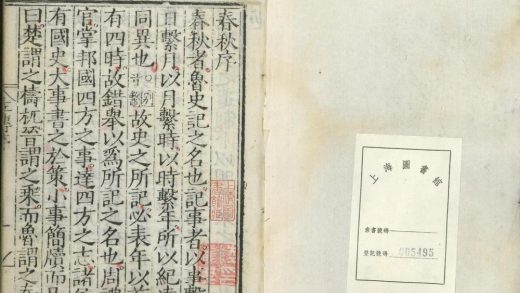 春秋序
春秋者魯史記之名也記事者以事繫
日繫月以月繫時以時繫年所以紀
同異也故史之所記必表年以首
有四時故錯舉以為所記之名也周禮
官掌邦國四方之事達四方之志諸
有國史大事書之於策小事簡牘而已
曰楚謂之檮杌晉謂之乘而魯謂之
上海圖書館
索書號碼
登記號碼